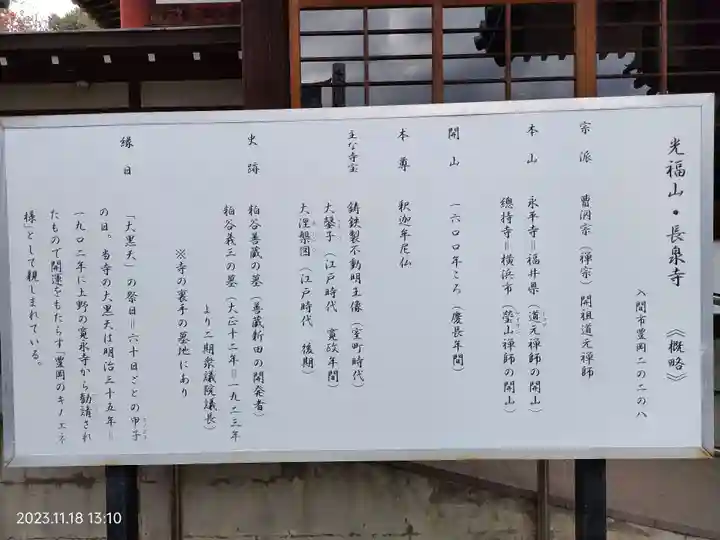 光福山・長泉寺 《概略》
入間市豊岡二の二の八
宗派 曹洞宗(禅宗)開祖道元禅師
本山 永平寺=福井県(道元禅師の開山)
總持寺=横浜市(瑩山禅師の開山)
開山 一六〇〇年ころ(慶長年間)
本尊 釈迦牟尼仏
主な寺宝 鋳鉄製不動明王像(室町時代)
大鏧子(江戸時代 寛政年間)
大涅槃図(江戸時代 後期)
史跡 粕谷善蔵の墓(善蔵新田の開発者)
粕谷義三の墓(大正十二年=一九二三年
より二期衆議院議長)
※寺の裏手の墓地にあり
縁日 「大黒天」の祭日=六十日ごとの甲子
の日。当寺の大黒天は明治三十五年=
一九〇二年に上野の寛永寺から勧請され
たもので開運をもたらす「豊岡のキノエネ
様」として親しまれている。
2023.11.18 13:10